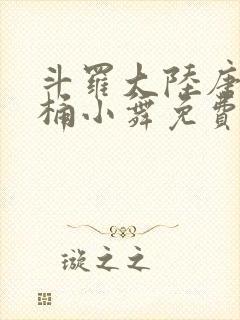 斗羅大陸唐
桶小舞免費
璇之之